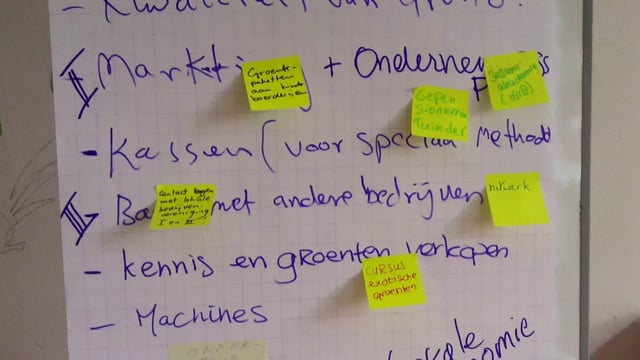 - Kwaliteit van grond.
I Markti + Onderne
Groente-
paketten
aan kinder
boerderijen
Sesam
akademie
(ISIS)
Gepen
sioneerde
Tuinder
- Kassen (voor speciaal methode
II Ba met andere bedrijven
contact leggen
met lokale
bedrijven-
vereniging
I en III
netwerk
- kennis en groenten verkopen
CURSUS
exotische
groenten
- Machines
ONDER